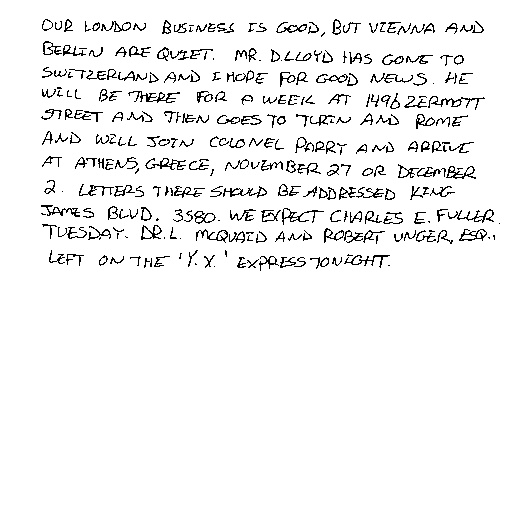 OUR LONDON BUSINESS IS GOOD, BUT VIENNA AND
BERLIN ARE QUIET. MR. D.LLOYD HAS GONE TO
SWITZERLAND AND I HOPE FOR GOOD NEWS. HE
WILL BE THERE FOR A WEEK AT 1496 ZERMOTT
STREET AND THEN GOES TO TURIN AND ROME
AND WILL JOIN COLONEL PARRY AND ARRIVE
AT ATHENS, GREECE, NOVEMBER 27 OR DECEMBER
2. LETTERS THERE SHOULD BE ADDRESSED KING
JAMES BLVD. 3580. WE EXPECT CHARLES E. FULLER
TUESDAY. DR. L. MCQUAID AND ROBERT UNGER, ESQ.,
LEFT ON THE 'Y.X.' EXPRESS TONIGHT.